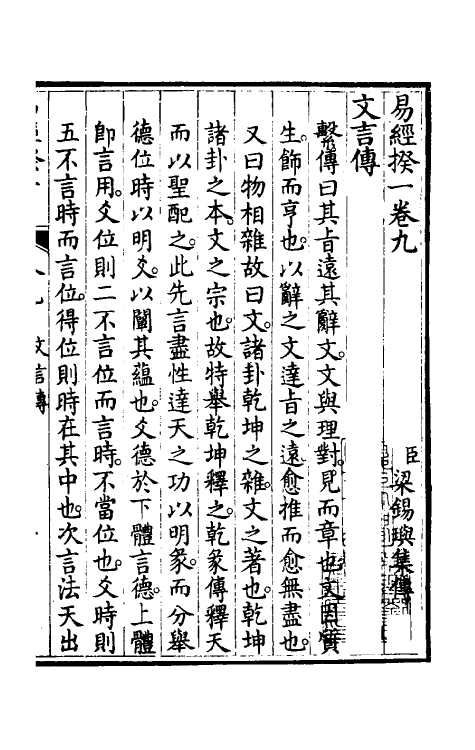 易經揆一卷九
臣梁錫璵集傳
文言傳
繫傳曰其㫖遠其辭文。文與理對。見而章也。文因質
生。飾而亨也。以辭之文達㫖之遠。愈推而愈無盡也。
又曰物相雜故曰文。諸卦乾坤之雜。文之著也。乾坤
諸卦之本。文之宗也。故特舉乾坤釋之。乾彖傳釋天
而以聖配之。此先言盡性達天之功以明彖。而分舉
德位時以明爻。以闡其蘊也。爻德於下體言德。上體
卽言用。爻位則二不言位而言時。不當位也。爻時則
五不言時而言位。得位則時在其中也。次言法天出
文言傳